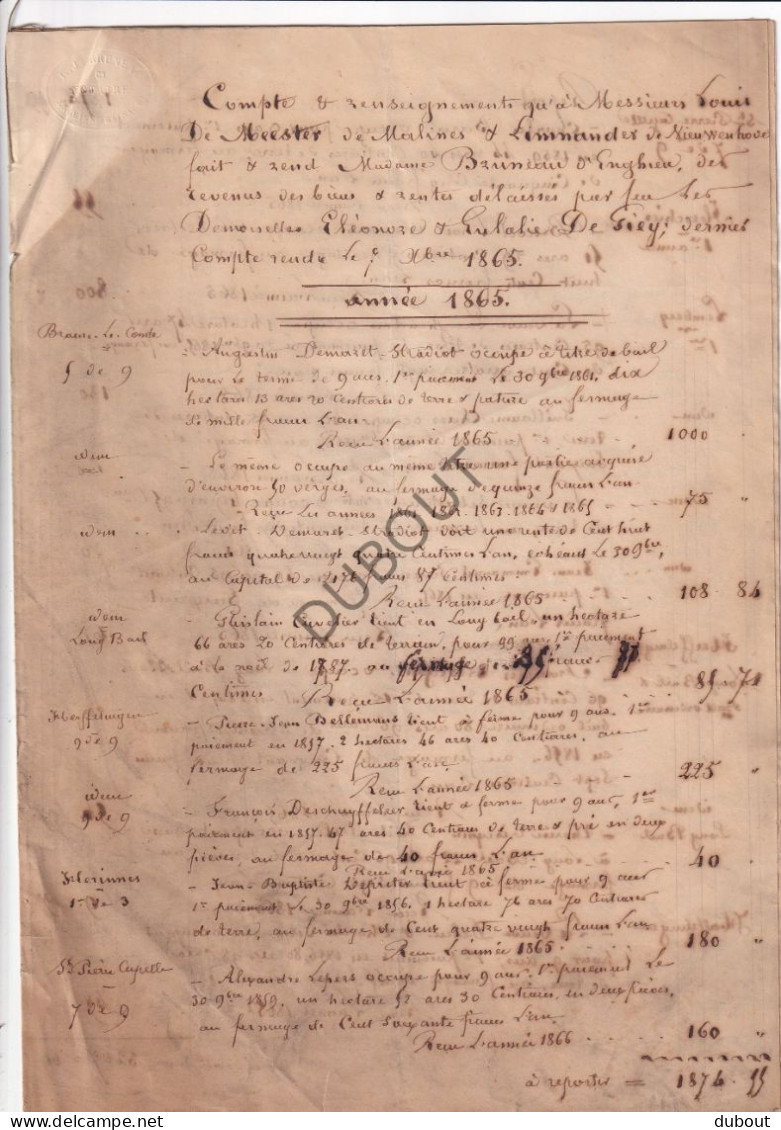 Compte & renseignements qu'à Messieurs Louis
De Meester de Malines & Limnander de Nieuwenhove
fait & rend Madame Bruneau d'Enghien, des
revenus des biens & rentes délaissés par feu les
Demoiselles Eléonore & Eulalie De Tiey; dernier
Compte rendu le 7 Xbre 1865.
année 1865.
Braine-Le-Comte
5 de 9
- Augustin Demaret-Stradiot occupe à titre de bail
pour le terme de 9 ans, 1er paiement le 30 9bre 1861, dix
hectares 13 ares 20 Centiares de terre & pature au fermage
de mille francs l'an.
Reçu l'année 1865 1000 "
idem
- Le même occupe au même titre une partie acquise
d'environ 50 verges, au fermage de quinze francs l'an
Reçu les années 1861-1862-1863-1864 & 1865 75 "
idem
- Le dit Demaret-Stradiot doit une rente de Cent huit
francs quatrevingt quatre Centimes l'an, échéant le 30 9bre,
au Capital de 2176 francs 87 Centimes.
Reçu l'année 1865 108 - 84
idem
Long Bail
- Ghislain Cuvelier tient en Long bail, un hectare
66 ares 20 Centiares de terrain, pour 99 ans, 1er paiement
à la noël de 1787, au fermage de 85 francs 71
Centimes Reçu l'année 1865 85 - 71
Herffelingen
9 de 9
- Pierre-Jean Bellemans tient à ferme pour 9 ans, 1er
paiement en 1857, 2 hectares 46 ares 40 Centiares, au
fermage de 225 francs l'an.
Reçu l'année 1865 225 "
idem
9 de 9
- François Deschuyffeleer tient à ferme pour 9 ans, 1er
paiement en 1857, 67 ares 40 Centiares de terre & pré en deux
pièces, au fermage de 40 francs l'an.
Reçu l'année 1865 40 "
Herinnes
1er de 3
- Jean-Baptiste Depreter tient à ferme pour 9 ans
1er paiement le 30 9bre 1856, 1 hectare 76 ares 70 Centiares
de terre, au fermage de Cent quatre vingt francs l'an
Reçu l'année 1865 180 "
St Pierre Capelle
7 de 9
- Alexandre Lepers occupe pour 9 ans, 1er paiement le
30 9bre 1859, un hectare 52 ares 30 Centiares, en deux pièces,
au fermage de Cent soixante francs l'an.
Reçu l'année 1866 160 "
à reporter = 1874 - 55
DUBOUT
delcampe.net
dubout